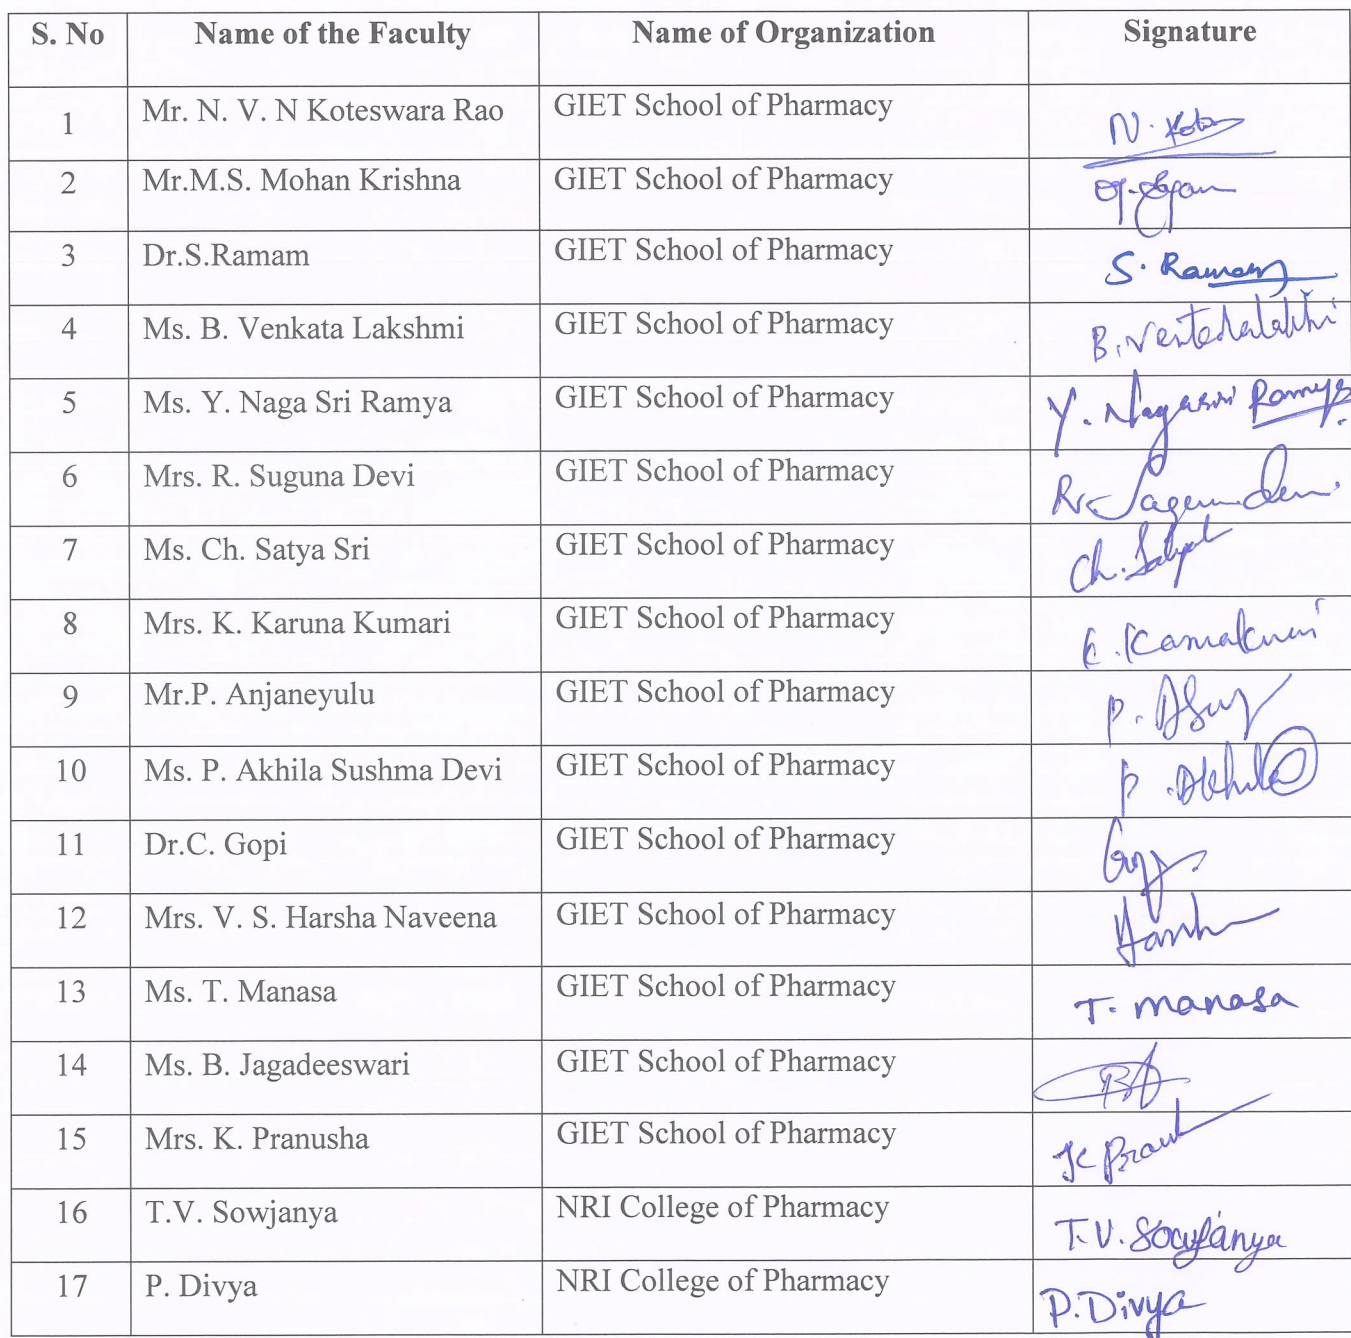 S. No Name of the Faculty Name of Organization Signature
1 Mr. N. V. N Koteswara Rao GIET School of Pharmacy N.
2 Mr.M.S. Mohan Krishna GIET School of Pharmacy
3 Dr.S.Ramam GIET School of Pharmacy S. Ramam
4 Ms. B. Venkata Lakshmi GIET School of Pharmacy B.
5 Ms. Y. Naga Sri Ramya GIET School of Pharmacy Y. Nagasri Ramya
6 Mrs. R. Suguna Devi GIET School of Pharmacy R.
7 Ms. Ch. Satya Sri GIET School of Pharmacy Ch.
8 Mrs. K. Karuna Kumari GIET School of Pharmacy K.
9 Mr.P. Anjaneyulu GIET School of Pharmacy P.
10 Ms. P. Akhila Sushma Devi GIET School of Pharmacy P. Akhila
11 Dr.C. Gopi GIET School of Pharmacy
12 Mrs. V. S. Harsha Naveena GIET School of Pharmacy
13 Ms. T. Manasa GIET School of Pharmacy T. manasa
14 Ms. B. Jagadeeswari GIET School of Pharmacy
15 Mrs. K. Pranusha GIET School of Pharmacy K
16 T.V. Sowjanya NRI College of Pharmacy T.V. Sowjanya
17 P. Divya NRI College of Pharmacy P. Divya